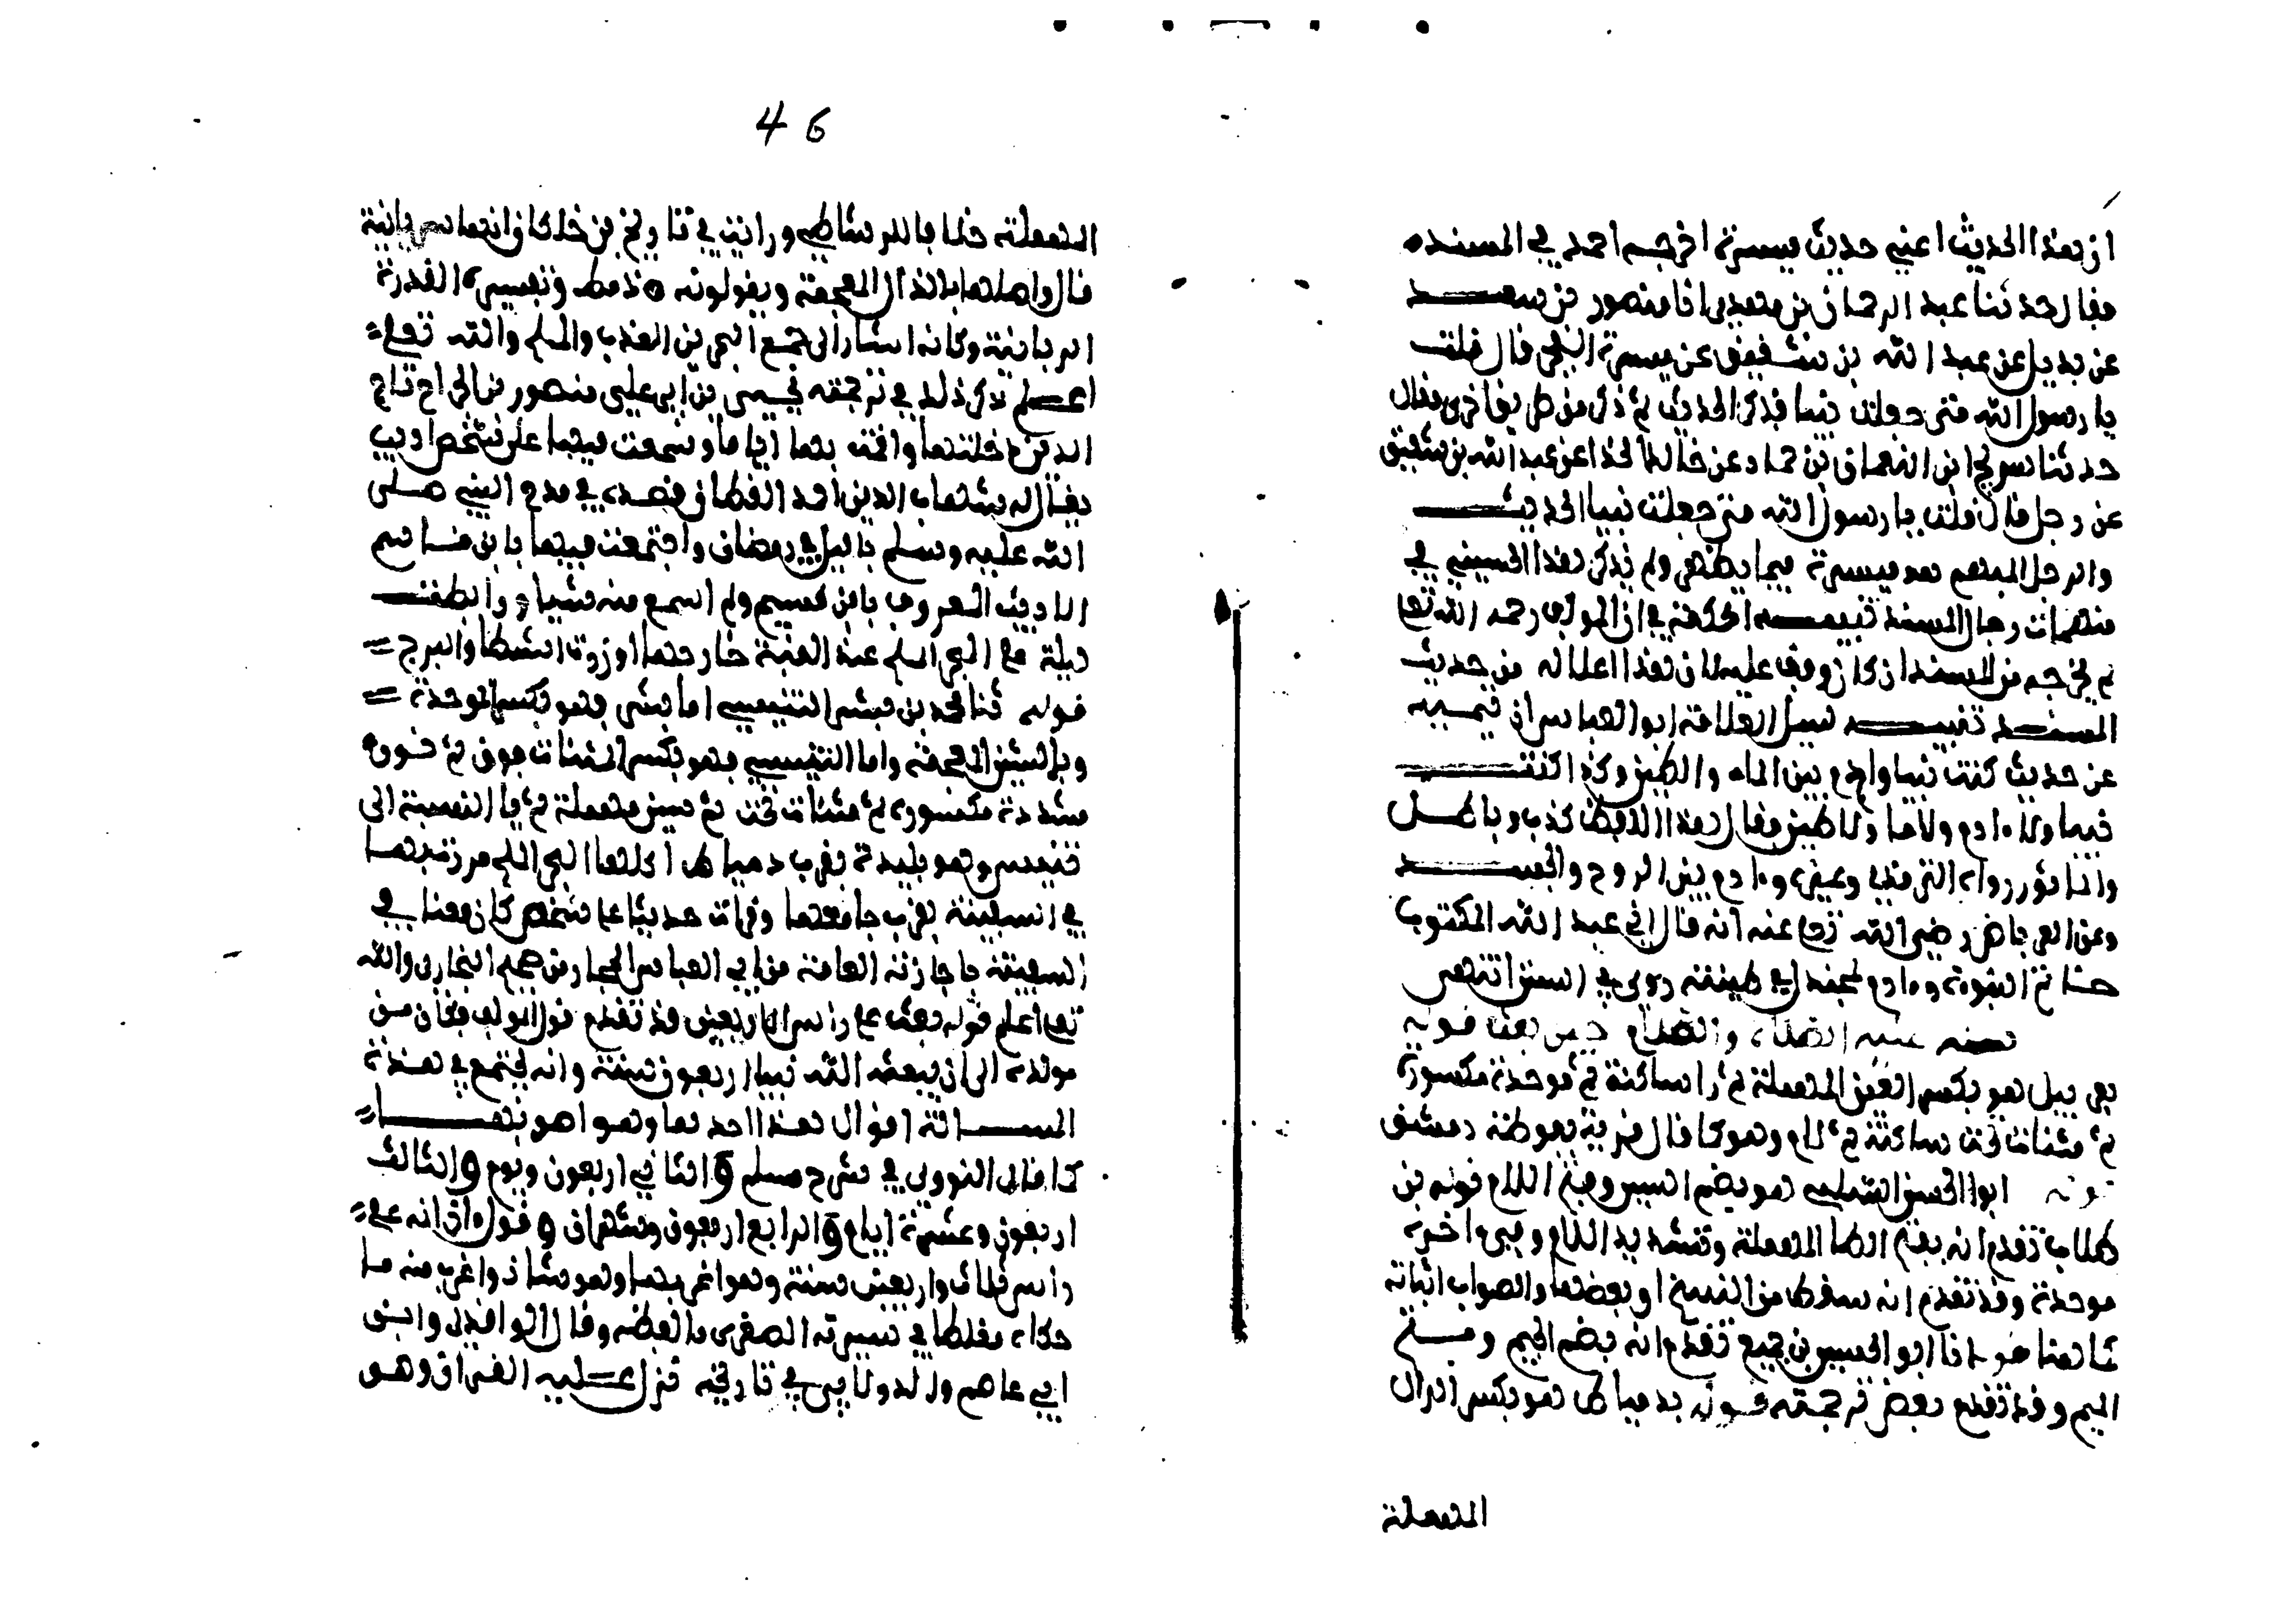 ان هذا الحديث اعني حديث ميسرة اخرجه احمد في المسنده
فقال حدثنا عبد الرحمان بن مهدي انا منصور بن سعد
عن بديل عن عبد الله بن شقيق عن ميسرة الفجر قال قلت
يا رسول الله متى جعلت نبيا فذكر الحديث ثم ذكر من طريق اخرى فقال
حدثنا سريج ابن النعمان بن حماد عن خالد الحذا عن عبد الله بن شقيق
عن رجل قال قلت يا رسول الله متى جعلت نبيا الحديث
والرجل المبهم هو ميسرة فيما يظهر ولم يذكر هذا الحسيني في
مبهمات رجال المسند تنبيه الحكمة في ان المولف رحمه الله تعا
لم يخرجه من المسند ان كان وقف عليه لان هذا اعلا له من حديث
المسند تنبيه سيل العلامة ابو العباس ابن تيمية
عن حديث كنت نبيا وادم بين الماء والطين وكذا كنت
نبيا ولا ادم ولا ما ولا طين فقال هذا اللفظ كذب وباطل
وانما يؤثر رواه الترمذي وغيره وادم بين الروح والجسد
وعن العرباض رضي الله تعا عنه انه قال اني عبد الله المكتوب
خاتم النبوة وادم لمجندل في طينته روي في السنن انتهى
قوله
عربيل هو بكسر العين المهملة ثم را ساكنة ثم موحدة مكسورة
ثم مثنات تحت ساكنة ثم لام وهو كما قال قرية بغوطة دمشق
قوله ابو الحسن السلمي هو بضم السين وفتح اللام قوله بن
طلاب تقدم انه بفتح الطا المهملة وتشديد اللام وفي اخره
موحدة وقد تقدم انه سقط من النسخ او بعضها والصواب اثباته
كما هنا قوله انا ابو الحسين بن جميع تقدم انه بضم الجيم وفتح
الميم وقد تقدم بعض ترجمته قوله بدمياط هو بكسر الدال
المهملة
46
المهملة خلافا للرشاطي ورايت في تاريخ بن خلكان انها سريانية
قال واصلها بالذال المعجمة ويقولونه ذمط وتفسيره القدرة
الربانية وكانه اشار الى مجمع البحرين العذب والملح والله تعلى
اعلم ذكر ذلك في ترجمة عيسى بن ابي علي منصور
الدين دخلتها واقمت بها اياما وسمعت فيها على شخص اديب
يقال له شهاب الدين احمد القطان قصيده في مدح النبي صلى
الله عليه وسلم بالليل في رمضان واجتمعت فيها بابن قاسم
الاديب المعروف بابن قسيم ولم اسمع منه شيا ورابطت
ليلة على البحر الملح عند القبة خارجها وزرت الشطا والبرج
قوله ثنا محمد بن بشر التنيسي اما بشر فهو بكسر الموحدة
وبالشين المعجمة واما التنيسي فهو بكسر المثنات فوق ثم نون
مشددة مكسورة ثم مثنات تحت ثم سين مهملة ثم يا النسبة الى
تنيس وهو بليدة بقرب دمياط اكلها البحر الملح مررت بها
في السفينة بقرب جامعها وقرات حديثا على شخص كان معنا في
السفينة باجازته العامة من ابي العباس الحجار من صحيح البخاري والله
تعا اعلم قوله بعث على راس الاربعين قد تقدم قول المولف فكان من
مولده الى ان بعثه الله نبيا اربعون سنة وانه يجتمع في هذه
المسالة اقوال هذا احدها وهو اصوبها
كما قال النووي في شرح مسلم والثاني اربعون ويوم والثالث
اربعون وعشرة ايام والرابع اربعون وشهران وقول اخر انه على
راس ثلاث واربعين سنة وهو اغربها وهو شاذ واغرب منه ما
حكاه مغلطاي في سيرته الصغرى ما لفظه وقال الواقدي وابن
ابي عاصم والدولابي في تاريخه نزل عليه القران وهو